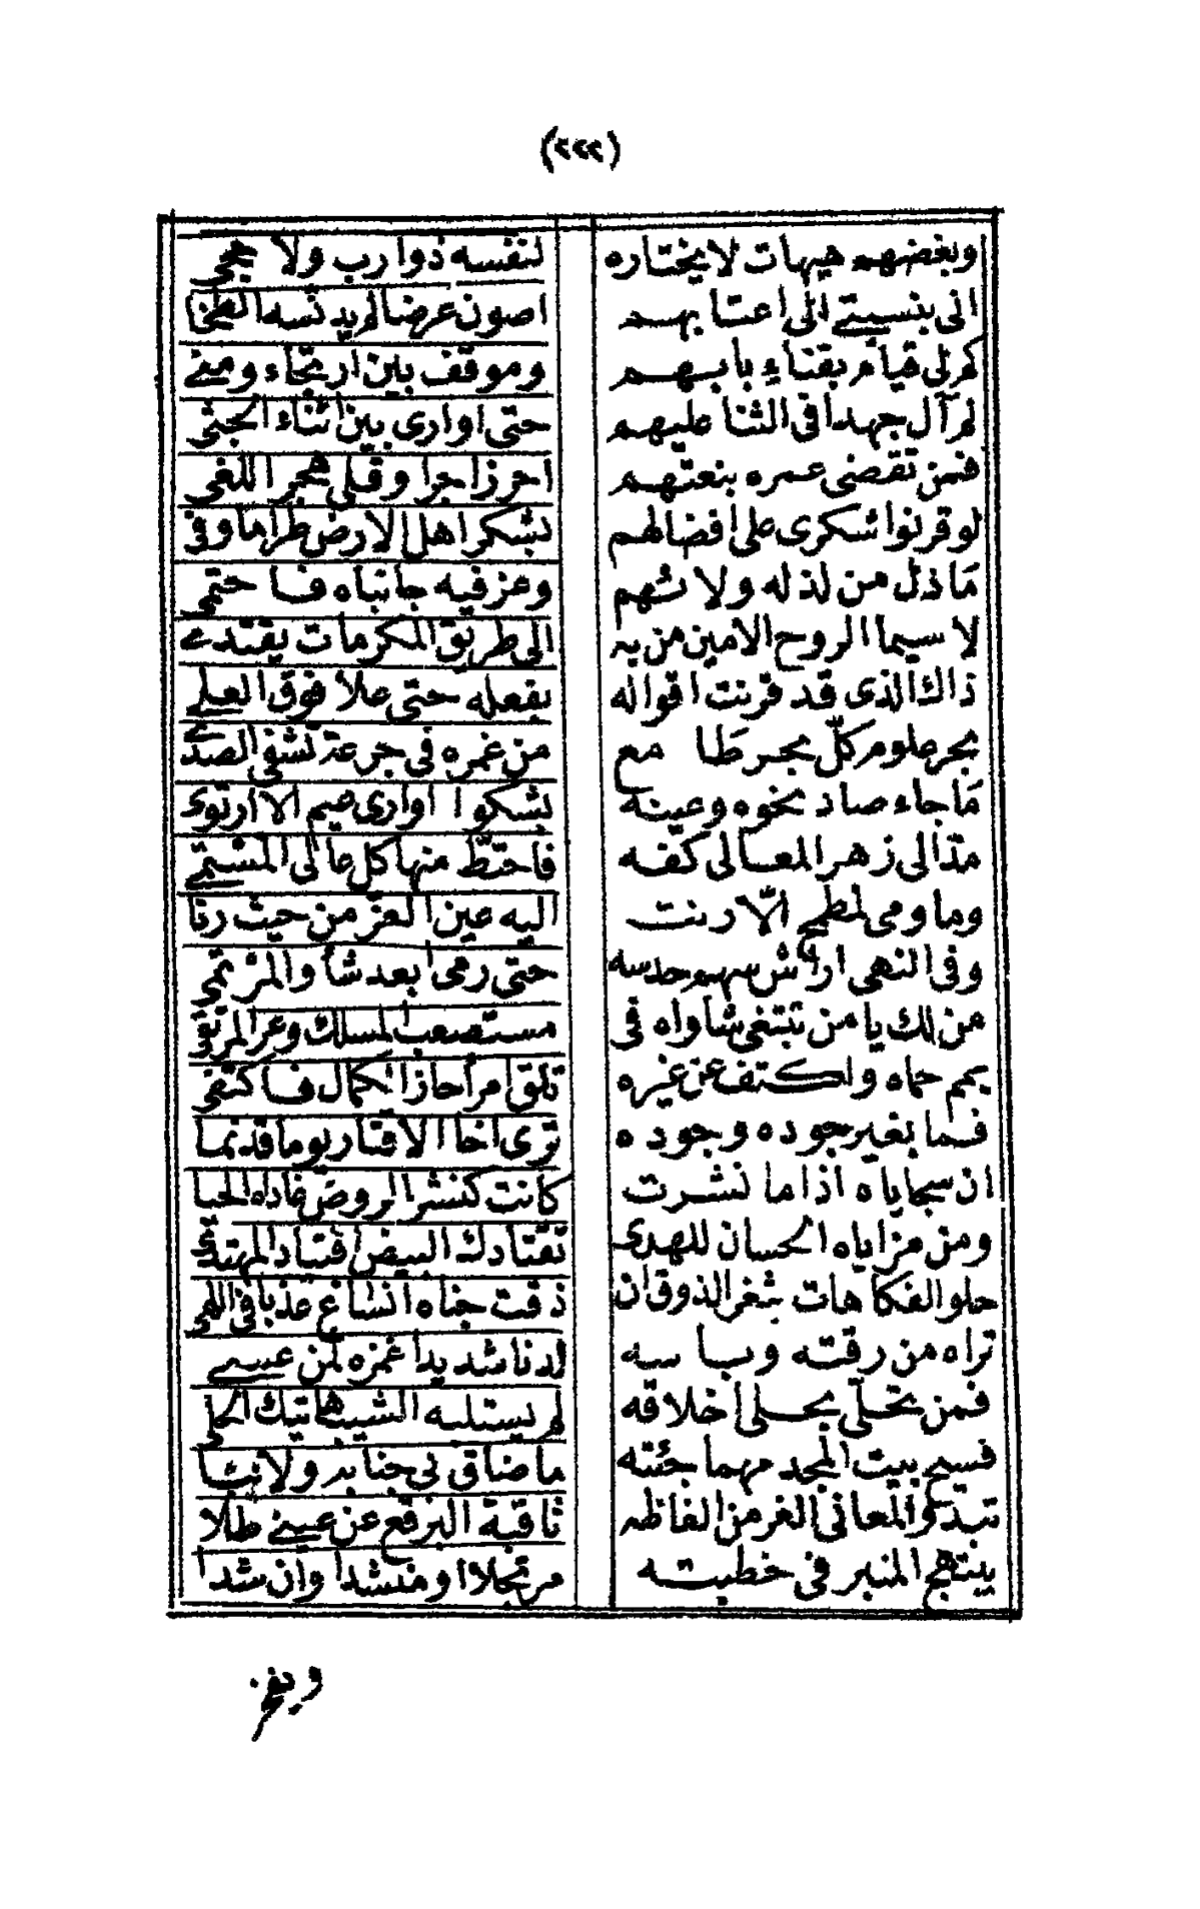 (٢٢٢)
وبغضهم هيهات لا يختاره لنفسه ذو ارب ولا حجى
انى بنسبتى الى اعتابهم اصون عرضا لم يدنسه الطخا
كم لى قيام بفناء بابهم وموقف بين ارتجاء ومنى
لم آل جهدا فى الثنا عليهم حتى اوارى بين اثناء الجثى
فمن تقضى عمره بنعتهم احرز اجرا وقلى هجر اللغى
لو قرنوا شكرى على افضالهم بشكر اهل الارض طرا ما وفى
مَا ذلّ من لذ له ولائهم وعز فيه جانباه فاحتمى
لا سيما الروح الامين من به الى طريق المكرمات يقتدى
ذاك الذى قد قرنت اقواله بفعله حتى علا فوق العلى
بحر علوم كلّ بحر طَا مع من غمره فى جرعة تشفى الصدى
مَا جاء صاد نحوه وعينه تشكو اوارى صيم الا ارتوى
مدّ الى زهر المعالى كفه فاحتطّ منها كل عالى المنتمى
وما ومى لمطمح الّا رنت اليه عين العز من حيث رنا
وفى النهى اراش سهم حدسه حتى رمى ابعد شأو المرتمى
من لك يا من تبتغى شاواه فى مستصعب المسلك وعر المرتقى
يمم حماه واكتف عن غيره تلق امرأ حاز الكمال فاكتفى
فما بغير جوده وجوده ترى اخا الاقتار يوما قد نما
ان سجاياه اذا ما نشرت كانت كنشر الروض غاداه الحيا
ومن مزاياه الحسان للهدى تقتادك البيض اقتياد المهتدى
حلو الفكاهات بثغر الذوق ان ذقت جناه انساغ عذبا فى اللهى
تراه من رقته وباسه لدنا شديدا غمزه لمن عسى
فمن تحلّى بحلى اخلاقه لم يستلبه الشيب هاتيك الحلى
فسيح بيت المجد مهما جئته ما ضاق لى جنابه ولا نبا
تبدو المعانى الغر من الفاظه ثاقبة البرقع عن عينى طلا
ينتهج المنبر فى خطبته مرتجلا او منشدا وان شدا